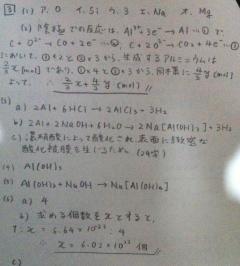 3 (1) ア. O イ. Si ウ. 3 エ. Na オ. Mg
(2) 陰極での反応は, Al³⁺+3e⁻→Al…①で
C+O²⁻→CO+2e⁻…②, C+2O²⁻→CO₂+4e⁻…③
において, ①×2と②×3から, 生成するアルミニウムは
2/3 x [mol]であり, ①×4と③×3から, 同様に 4/3 y [mol]
よって, ∴ 2/3 x + 4/3 y [mol]
(3) a) 2Al+6HCl→2AlCl₃+3H₂
b) 2Al+2NaOH+6H₂O→2Na[Al(OH)₄]+3H₂
c) 濃硝酸によって酸化され, 表面に緻密な
酸化被膜を生じるため。(24字)
(4) Al(OH)₃
(5) Al(OH)₃+NaOH→Na[Al(OH)₄]
(6) a) 4
b) 求める個数をxとすると,
x = 6.02×10²³ 個
c)